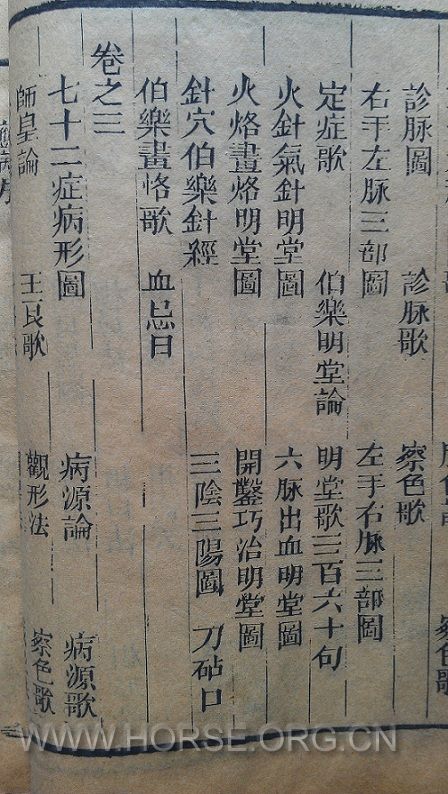 診脉圖 診脉歌 察色歌
右手左脉三部圖 左手右脉三部圖
定症歌 伯樂明堂論 明堂歌三百六十句
火針氣針明堂圖 六脉出血明堂圖
火烙畫烙明堂圖 開鑿巧治明堂圖
針穴伯樂針經 三陰三陽圖 刀砧日
伯樂畫烙歌 血忌日
卷之三
七十二症病形圖 病源論 病源歌
師皇論 王良歌 觀形法 察色歌
WWW.HORSE.ORG.CN